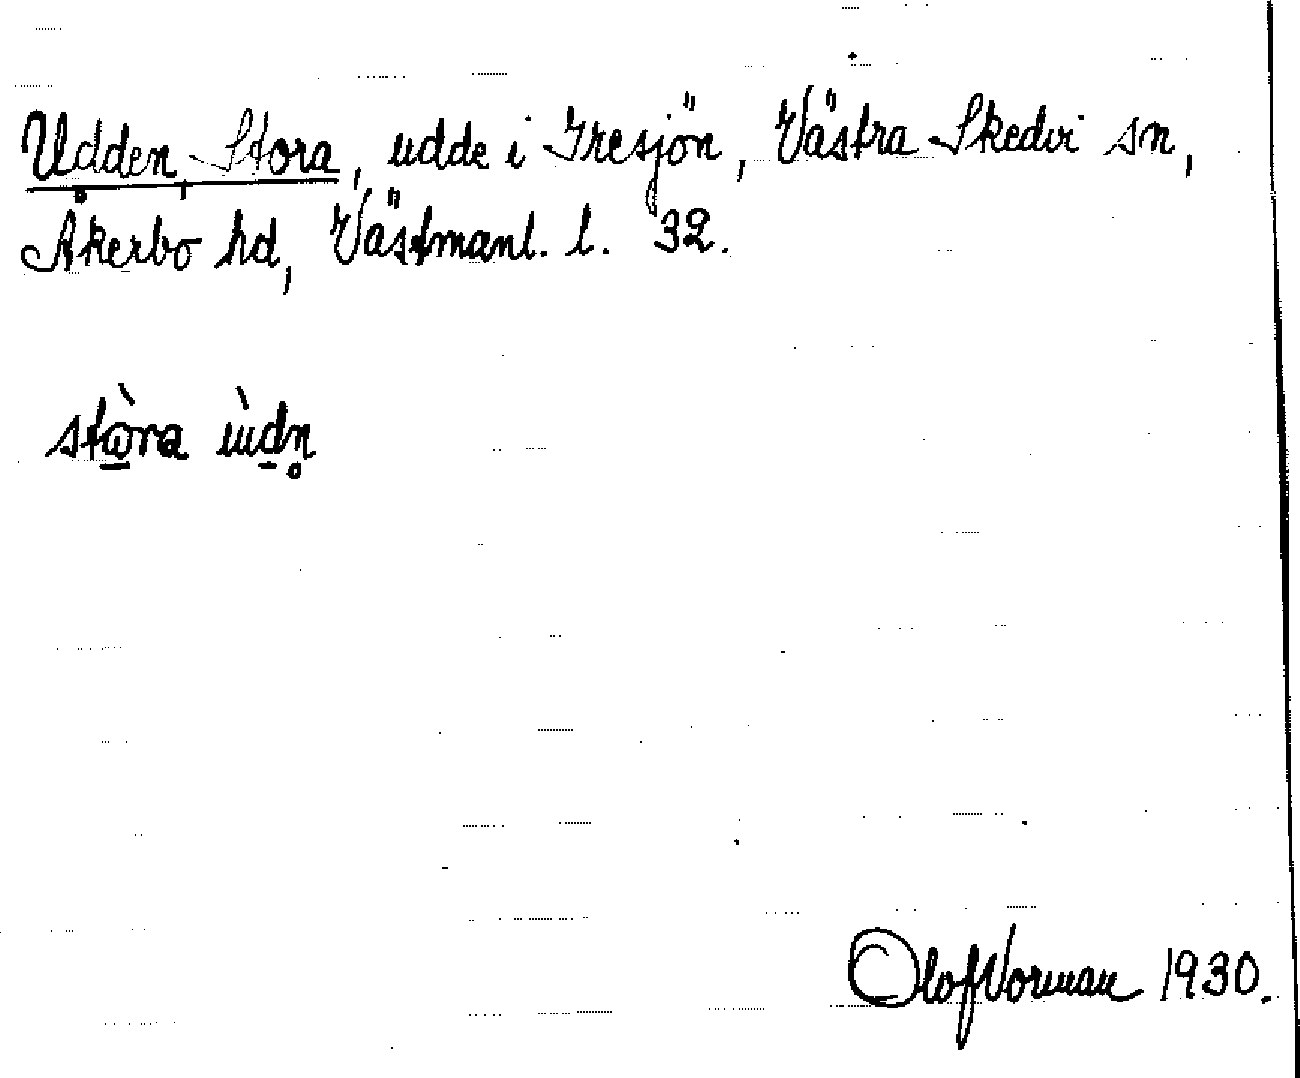 Udden, Stora, udde i Gresjön, Västra Skedvi sn,
Åkerbo hd, Västmanl. l. 32.
stòra ùdn̥
Olof Norman 1930.